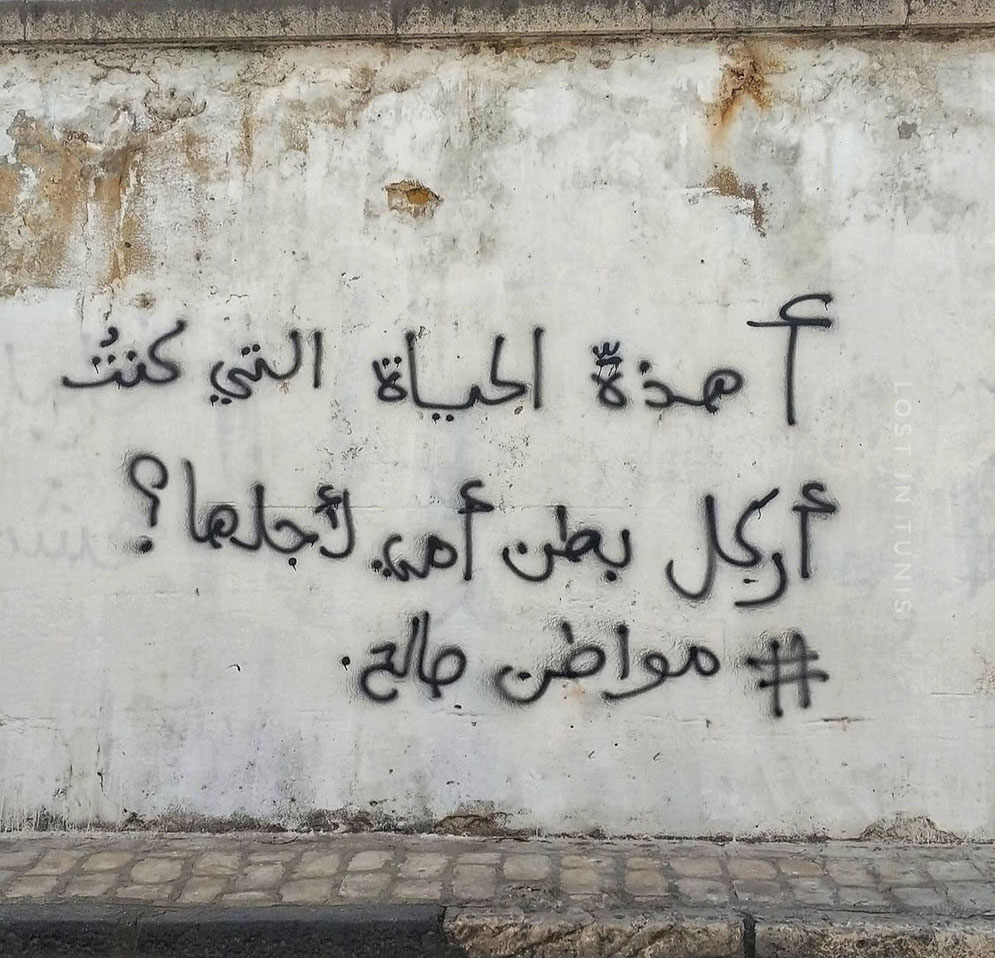 أ هذةّ الحياة التي كنتُ
أركل بطن أمي لأجلها؟
# مواطن صالح.
LOST IN TUNIS